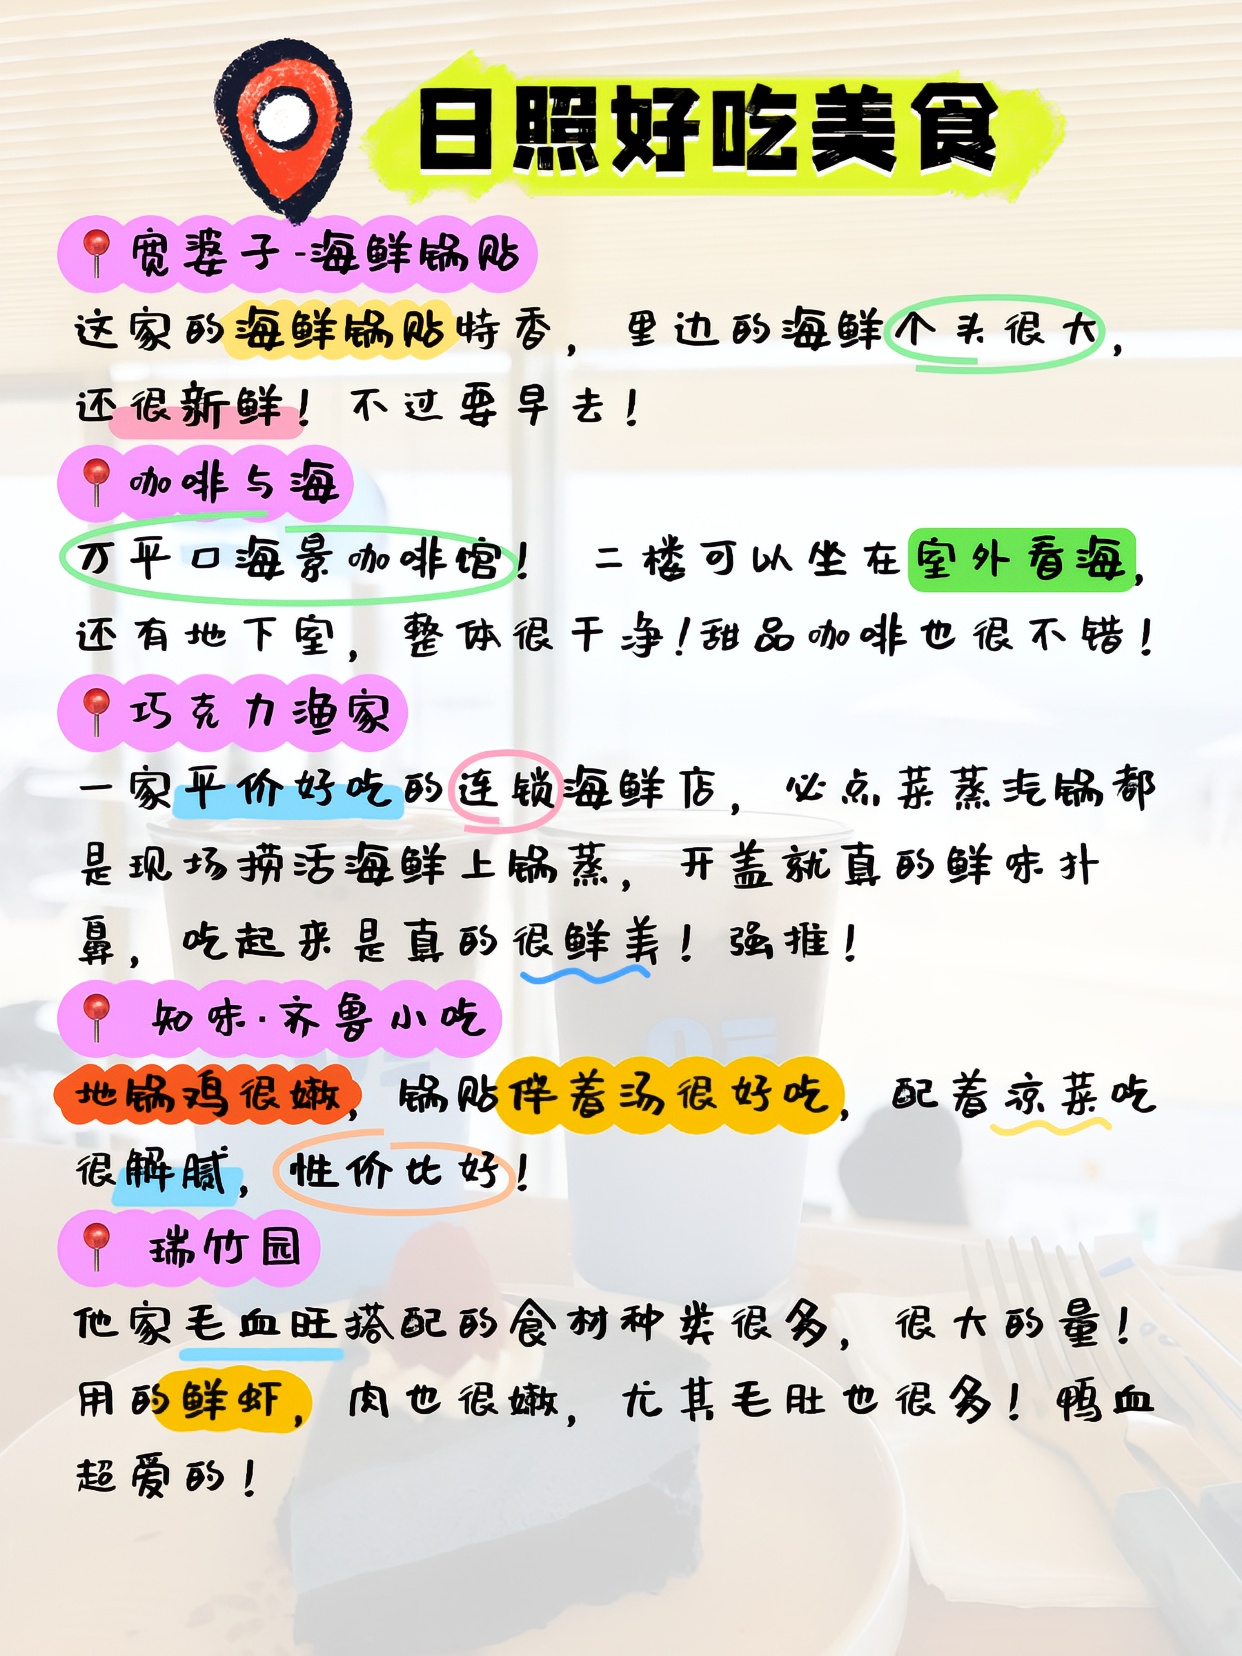 日照好吃美食
宽婆子-海鲜锅贴
这家的海鲜锅贴特香，里边的海鲜个头很大，
还很新鲜！不过要早去！
咖啡与海
万平口海景咖啡馆！ 二楼可以坐在室外看海，
还有地下室，整体很干净！甜品咖啡也很不错！
巧克力渔家
一家平价好吃的连锁海鲜店，必点菜蒸汽锅都
是现场捞活海鲜上锅蒸，开盖就真的鲜味扑
鼻，吃起来是真的很鲜美！强推！
知味·齐鲁小吃
地锅鸡很嫩，锅贴伴着汤很好吃，配着凉菜吃
很解腻，性价比好！
瑞竹园
他家毛血旺搭配的食材种类很多，很大的量！
用的鲜虾，肉也很嫩，尤其毛肚也很多！鸭血
超爱的！